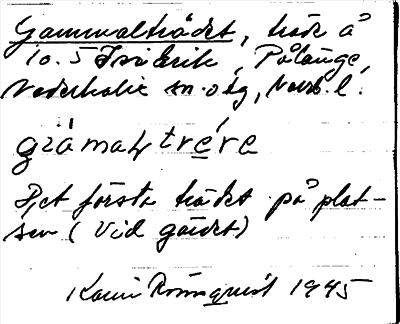 Gammalträdet, träd å
10.5 Fredrik, Pålänge,
Nederkalix sn. o tg, Norrb. l.
grämaḷtrére
Det första trädet på plat-
sen (Vid gärdet)
Karin Rönnquist 1945